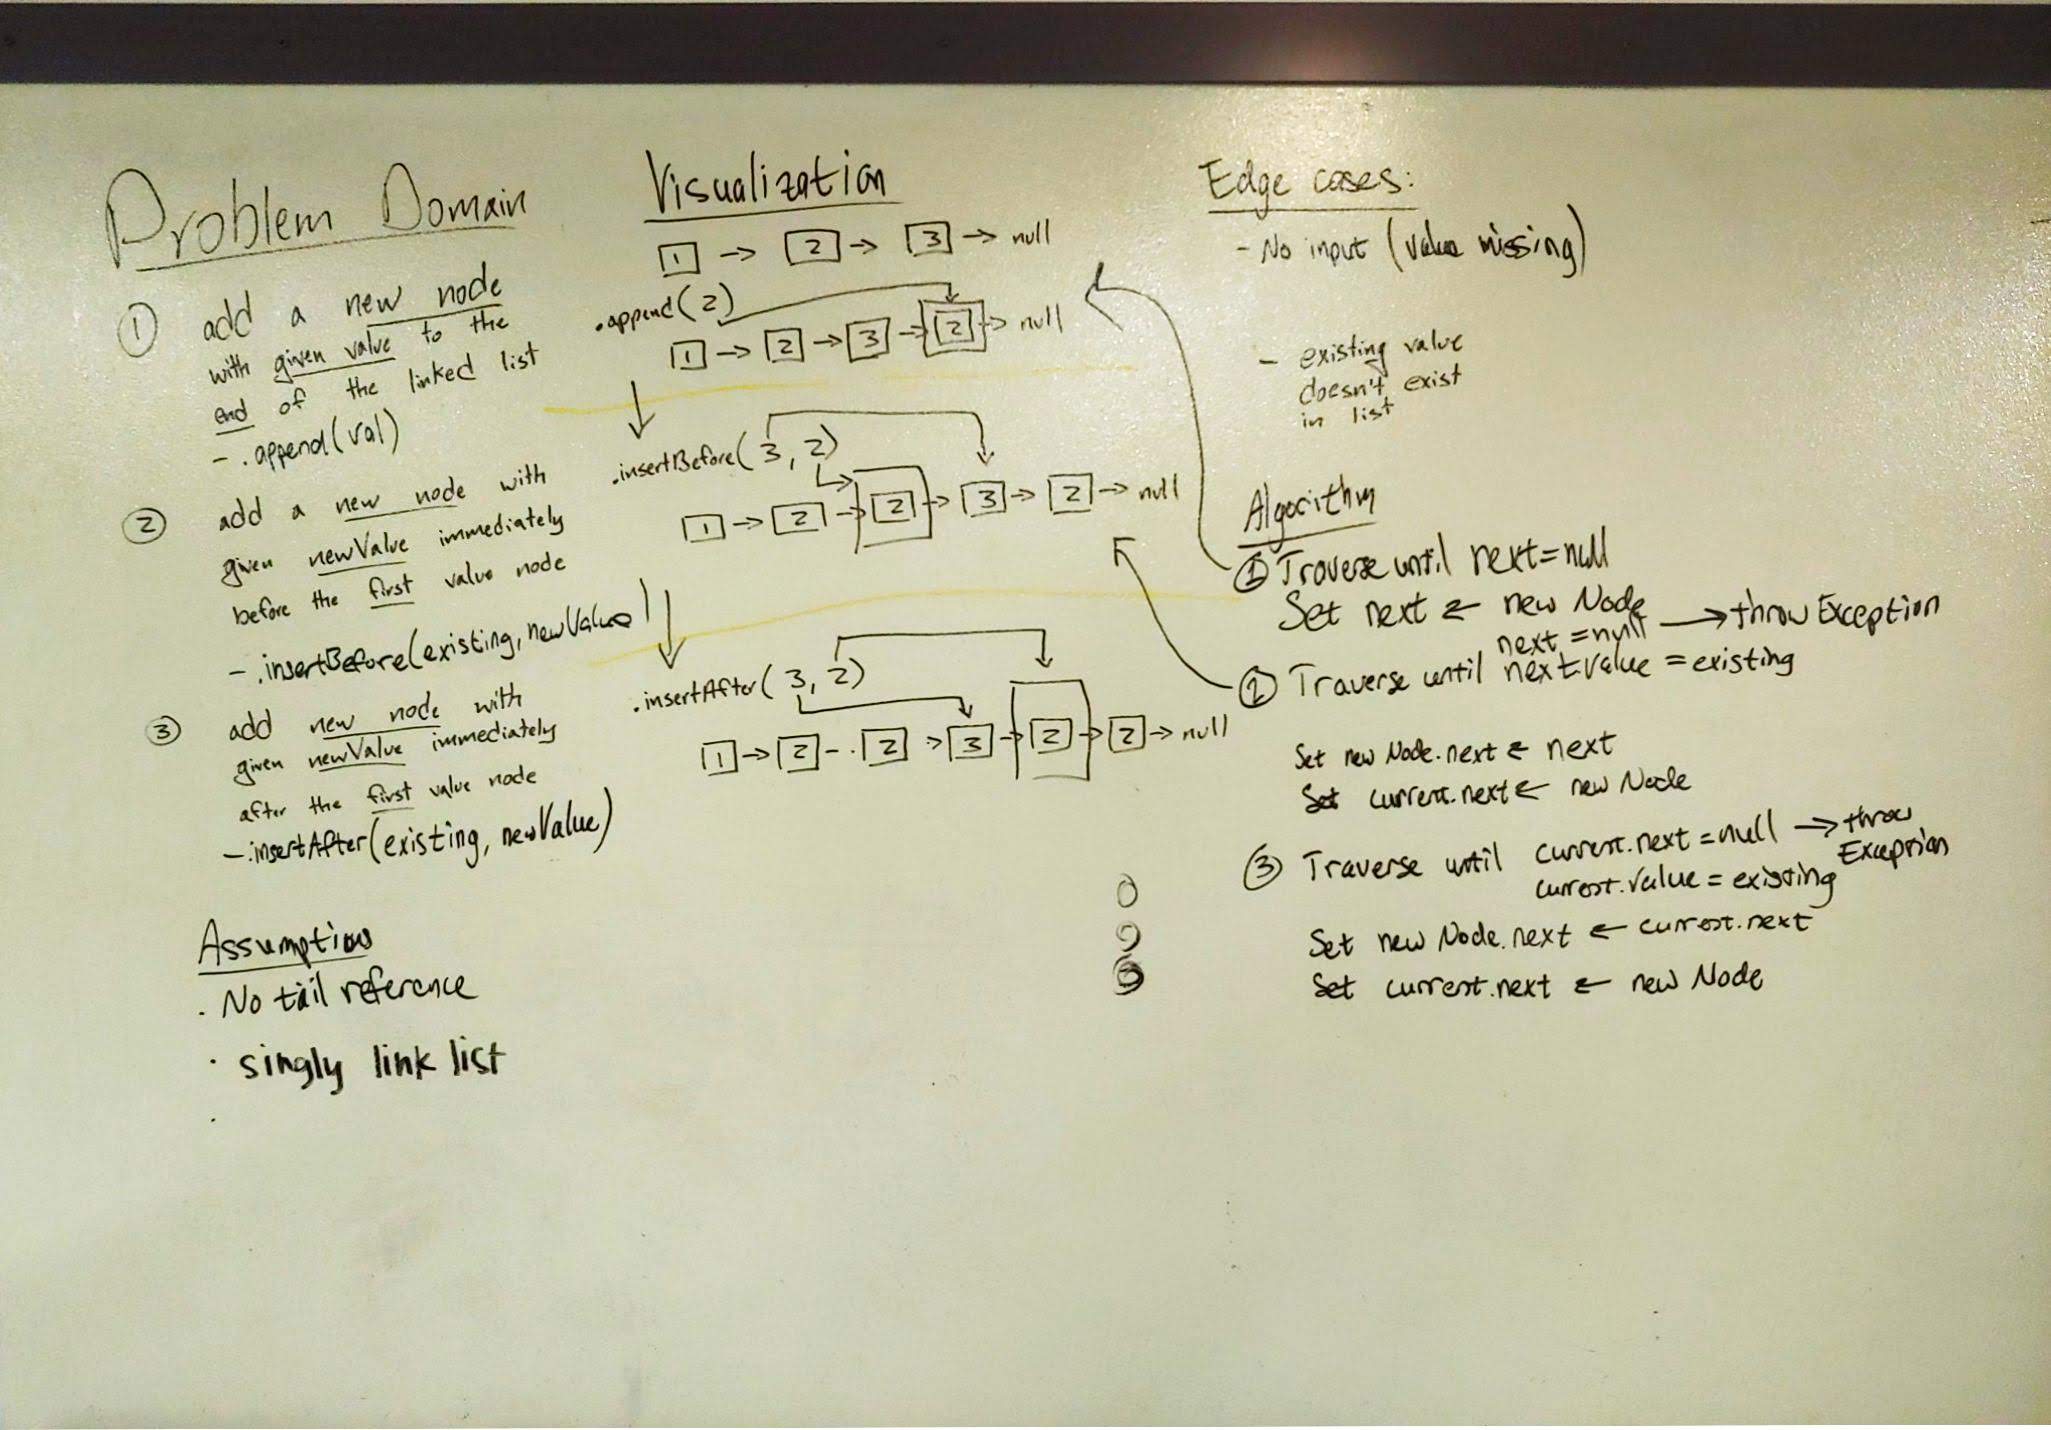 Problem Domain
① add a new node
with given value to the
end of the linked list
- .append(val)
② add a new node with
given newValue immediately
before the first value node
- .insertBefore(existing, newValue)
③ add new node with
given newValue immediately
after the first value node
- .insertAfter(existing, newValue)
Assumptions
. No tail reference
. singly link list
.
Visualization
1 → 2 → 3 → null
.append(2)
1 → 2 → 3 → 2 → null
.insertBefore(3, 2)
1 → 2 → 2 → 3 → 2 → null
.insertAfter(3, 2)
1 → 2 - . 2 > 3 → 2 → 2 → null
Edge cases:
- No input (value missing)
- existing value
doesn't exist
in list
Algorithm
① Traverse until next = null
Set next ← new Node
next = null → throw Exception
② Traverse until next.value = existing
Set new Node.next ← next
Set current.next ← new Node
③ Traverse until current.next = null → throw
Exception
current.value = existing
Set new Node.next ← current.next
Set current.next ← new Node